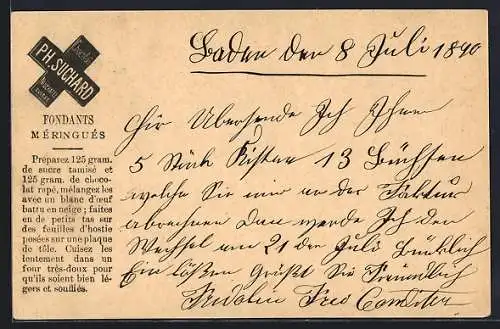 Chocolat
PH. SUCHARD
FONDANTS
MÉRINGUÉS
Préparez 125 gram.
de sucre tamisé et
125 gram. de choco-
lat rapé, mélangez les
avec un blanc d'œuf
battu en neige; faites
en de petits tas sur
des feuilles d'hostie
posées sur une plaque
de tôle. Cuisez les
lentement dans un
four très-doux pour
qu'ils soient bien lé-
gers et soufflés.
Baden den 8 Juli 1890
Hir Ubersende Ich Ihnen
5 Stück Kisten 13 Büchsen
welche Sie mir an der Faktur
abrechnen Dan werde Ich den
Wechsel am 21 den Juli
Ein Grüßt Sie Freundlich
Fridolin